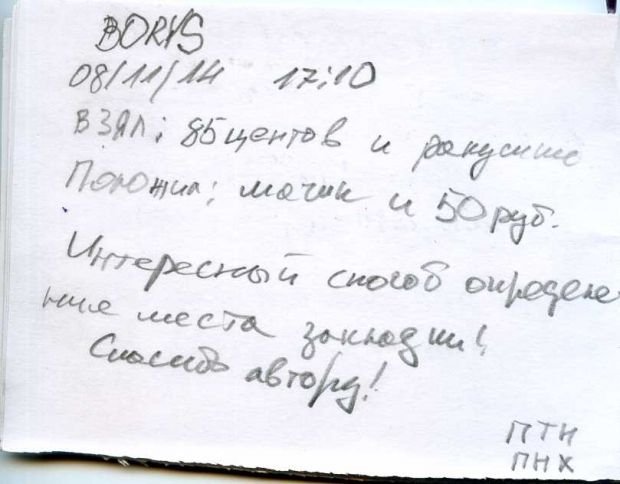 BORYS
08/11/14 17:10
ВЗЯЛ: 85 центов и ракушку
Положил: мячик и 50 руб.
Интересный способ определе
ние места закладки!
Спасибо автору!
ПТН
ПНХ